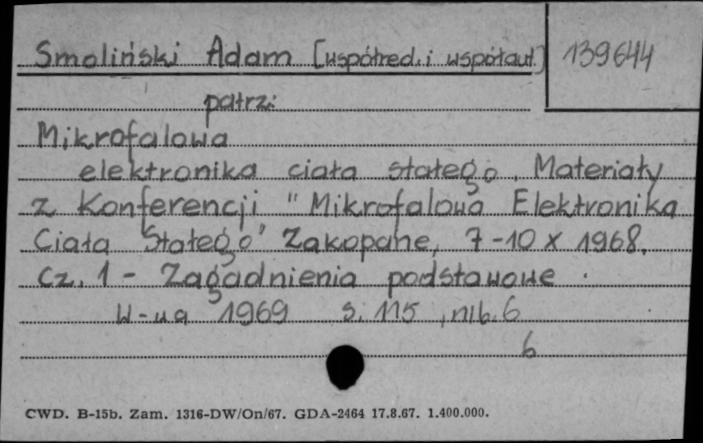 Smoliński Adam [współred. i współaut.] 139644
patrz:
Mikrofalowa
elektronika ciała stałego. Materiały
z Konferencji "Mikrofalowa Elektronika
Ciała Stałego" Zakopane, 7-10 X 1968.
Cz. 1 - Zagadnienia podstawowe.
W-wa 1969 s. 115, nlb. 6
6
CWD. B-15b. Zam. 1316-DW/On/67. GDA-2464 17.8.67. 1.400.000.